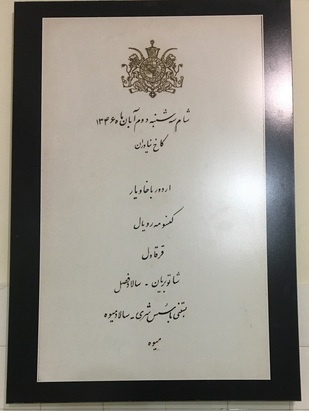 شام سه شنبه دوم آبان ماه ۱۳۴۶
کاخ نیاوران
اردور باخاویار
کنسومه رویال
قرقاول
شاتوبریان - سالاد فصل
بستنی با سس شری - سالاد میوه
میوه